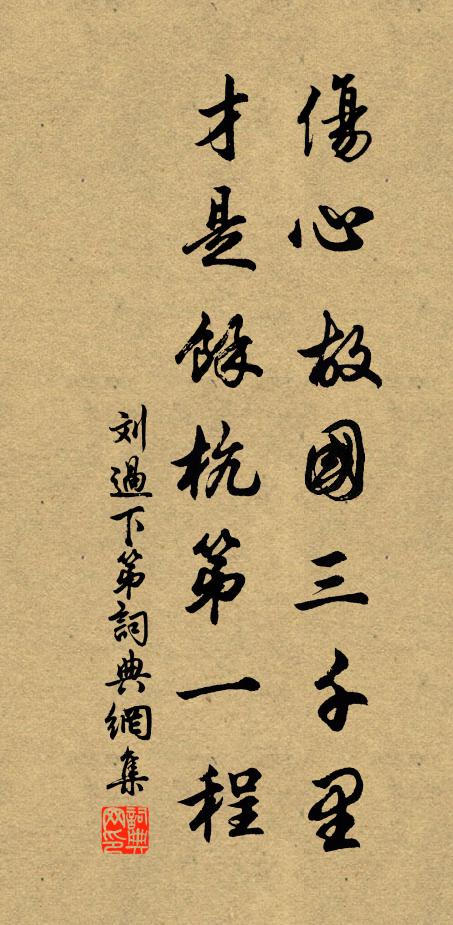 傷心故國三千里
才是餘杭第一程
刘過下第詞典網集
詞典網印